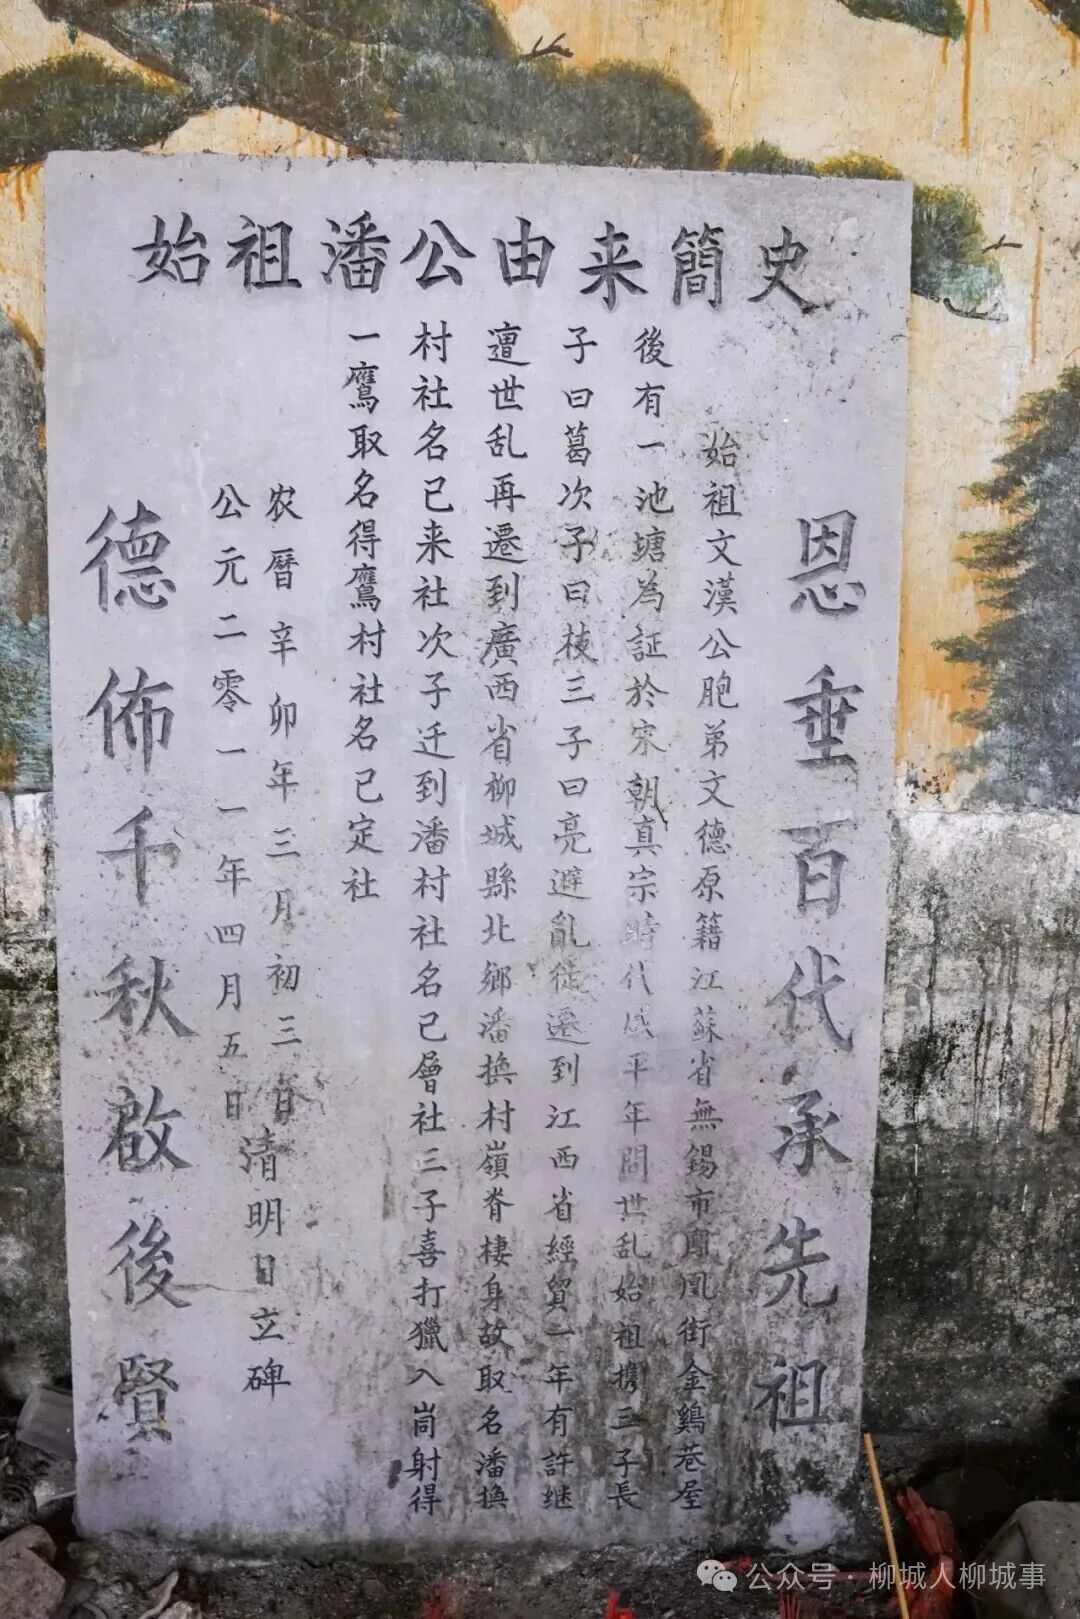 始祖潘公由来簡史
恩垂百代承先祖
始祖文漢公胞弟文德原籍江蘇省無錫市鳳凰街金鷄巷屋
後有一池塘為証於宋朝真宗時代咸平年間世乱始祖携三子長
子曰葛次子曰枝三子曰亮避亂徙遷到江西省經貿一年有許继
遭世乱再遷到廣西省柳城縣北鄉潘换村嶺脊棲身故取名潘换
村社名已来社次子迁到潘村社名已會社三子喜打獵入峝射得
一鷹取名得鷹村社名已定社
农曆辛卯年三月初三日清明日立碑
公元二零一一年四月五日
德佈千秋啟後賢
公众号·柳城人柳城事